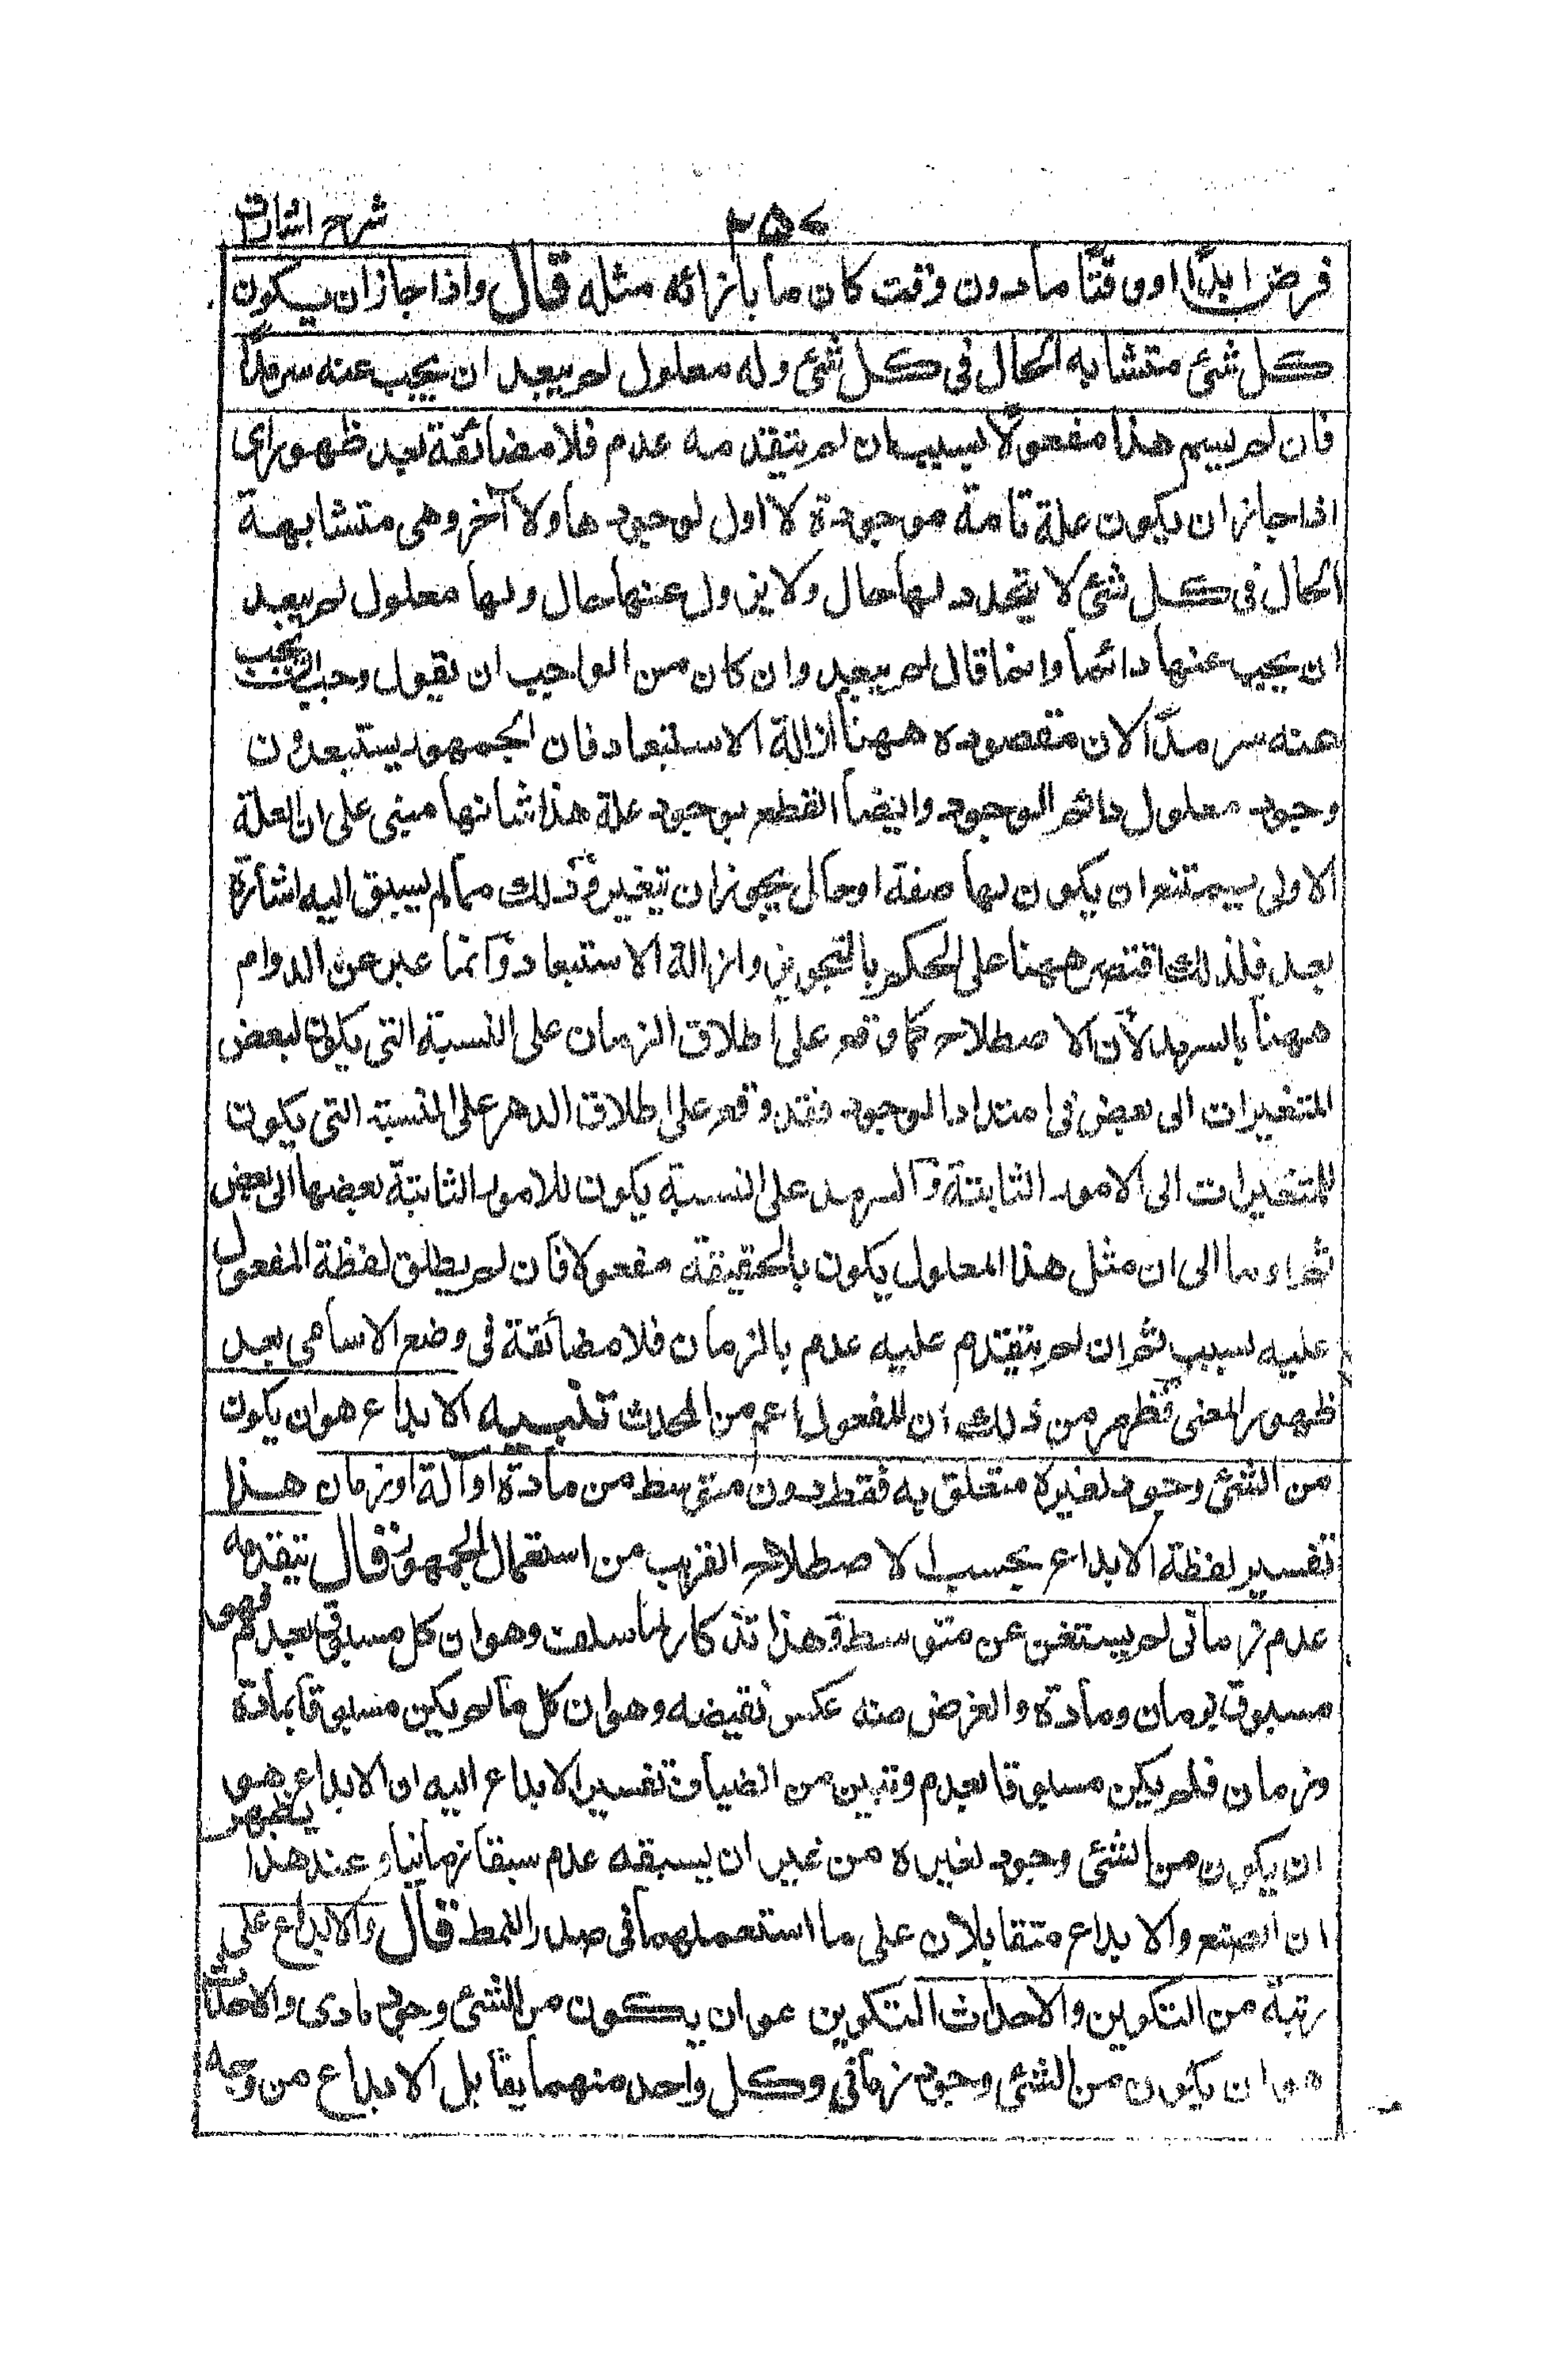 شرح اشارات
٢٥٧
فرض ابدًا او وقتًا ما دون وقت كان ما بازائه مثله قال واذا جاز ان يكون
كل شئ متشابه الحال فى كل شئ وله معلول لم يبعد ان يجب عنه سرمدًا
فان لم يسم هذا مفعولًا بسبب ان لم يتقدمه عدم فلا مضائقة بعد ظهور اى
اذا جاز ان يكون علة تامة موجودة لا اول لوجودها ولا آخر وهى متشابهة
الحال فى كل شئ لا يتجدد لها حال ولا يزول عنها حال ولها معلول لم يبعد
ان يجب عنها دائمًا وانما قال لم يبعد وان كان من الواجب ان نقول وجب ان يجب
عنه سرمدًا لان مقصوده ههنا ازالة الاستبعاد فان الجمهور يستبعدون
وجود معلول دائم الوجود وايضا القطع بوجود علة هذا شانها مبنى على ان العلة
الاولى يمتنع ان يكون لها صفة او حال يجوز ان تتغير وذلك مما لم يسبق اليه اشارة
بعد فلذلك اقتصر ههنا على الحكم بالتجويز وازالة الاستبعاد وانما عبر عن الدوام
ههنا بالسرمد لان الاصطلاح كما وقع على اطلاق الزمان على النسبة التى يكون لبعض
المتغيرات الى بعض فى امتداد الوجود فقد وقع على اطلاق الدهر على النسبة التى يكون
للمتغيرات الى الامور الثابتة والسرمد على النسبة يكون للامور الثابتة بعضها الى بعض
ثم اوما الى ان مثل هذا المعلول يكون بالحقيقة مفعولا فان لم يطلق لفظة المفعول
عليه بسبب ثم ان لم يتقدم عليه عدم بالزمان فلا مضائقة فى وضع الاسامى بعد
ظهور المعنى فظهر من ذلك ان المفعول اعم من المحدث تنبيه الابداع هو ان يكون
من الشئ وجود لغيره متعلق به فقط دون متوسط من مادة او آلة او زمان هذا
تفسير لفظة الابداع بحسب الاصطلاح القريب من استعمال الجمهور قال يتقدمه
عدم زمانى لم يستغن عن متوسط وهذا تذكار لما سلف وهو ان كل مسبوق بعدم فهو
مسبوق بزمان ومادة والغرض منه عكس نقيضه وهو ان كل ما لم يكن مسبوقا بمادة
وزمان فلم يكن مسبوقا بعدم وتبين من انضياف تفسير الابداع اليه ان الابداع هو
ان يكون من الشئ وجود لغيره من غير ان يسبقه عدم سبقا زمانيا وعند هذا يظهر
ان الصنع والابداع متقابلان على ما استعملهما فى صدر النمط قال والابداع على
رتبة من التكوين والاحداث التكوين هو ان يكون من الشئ وجود مادى والاحداث
هو ان يكون من الشئ وجود زمانى وكل واحد منهما يقابل الابداع من وجه